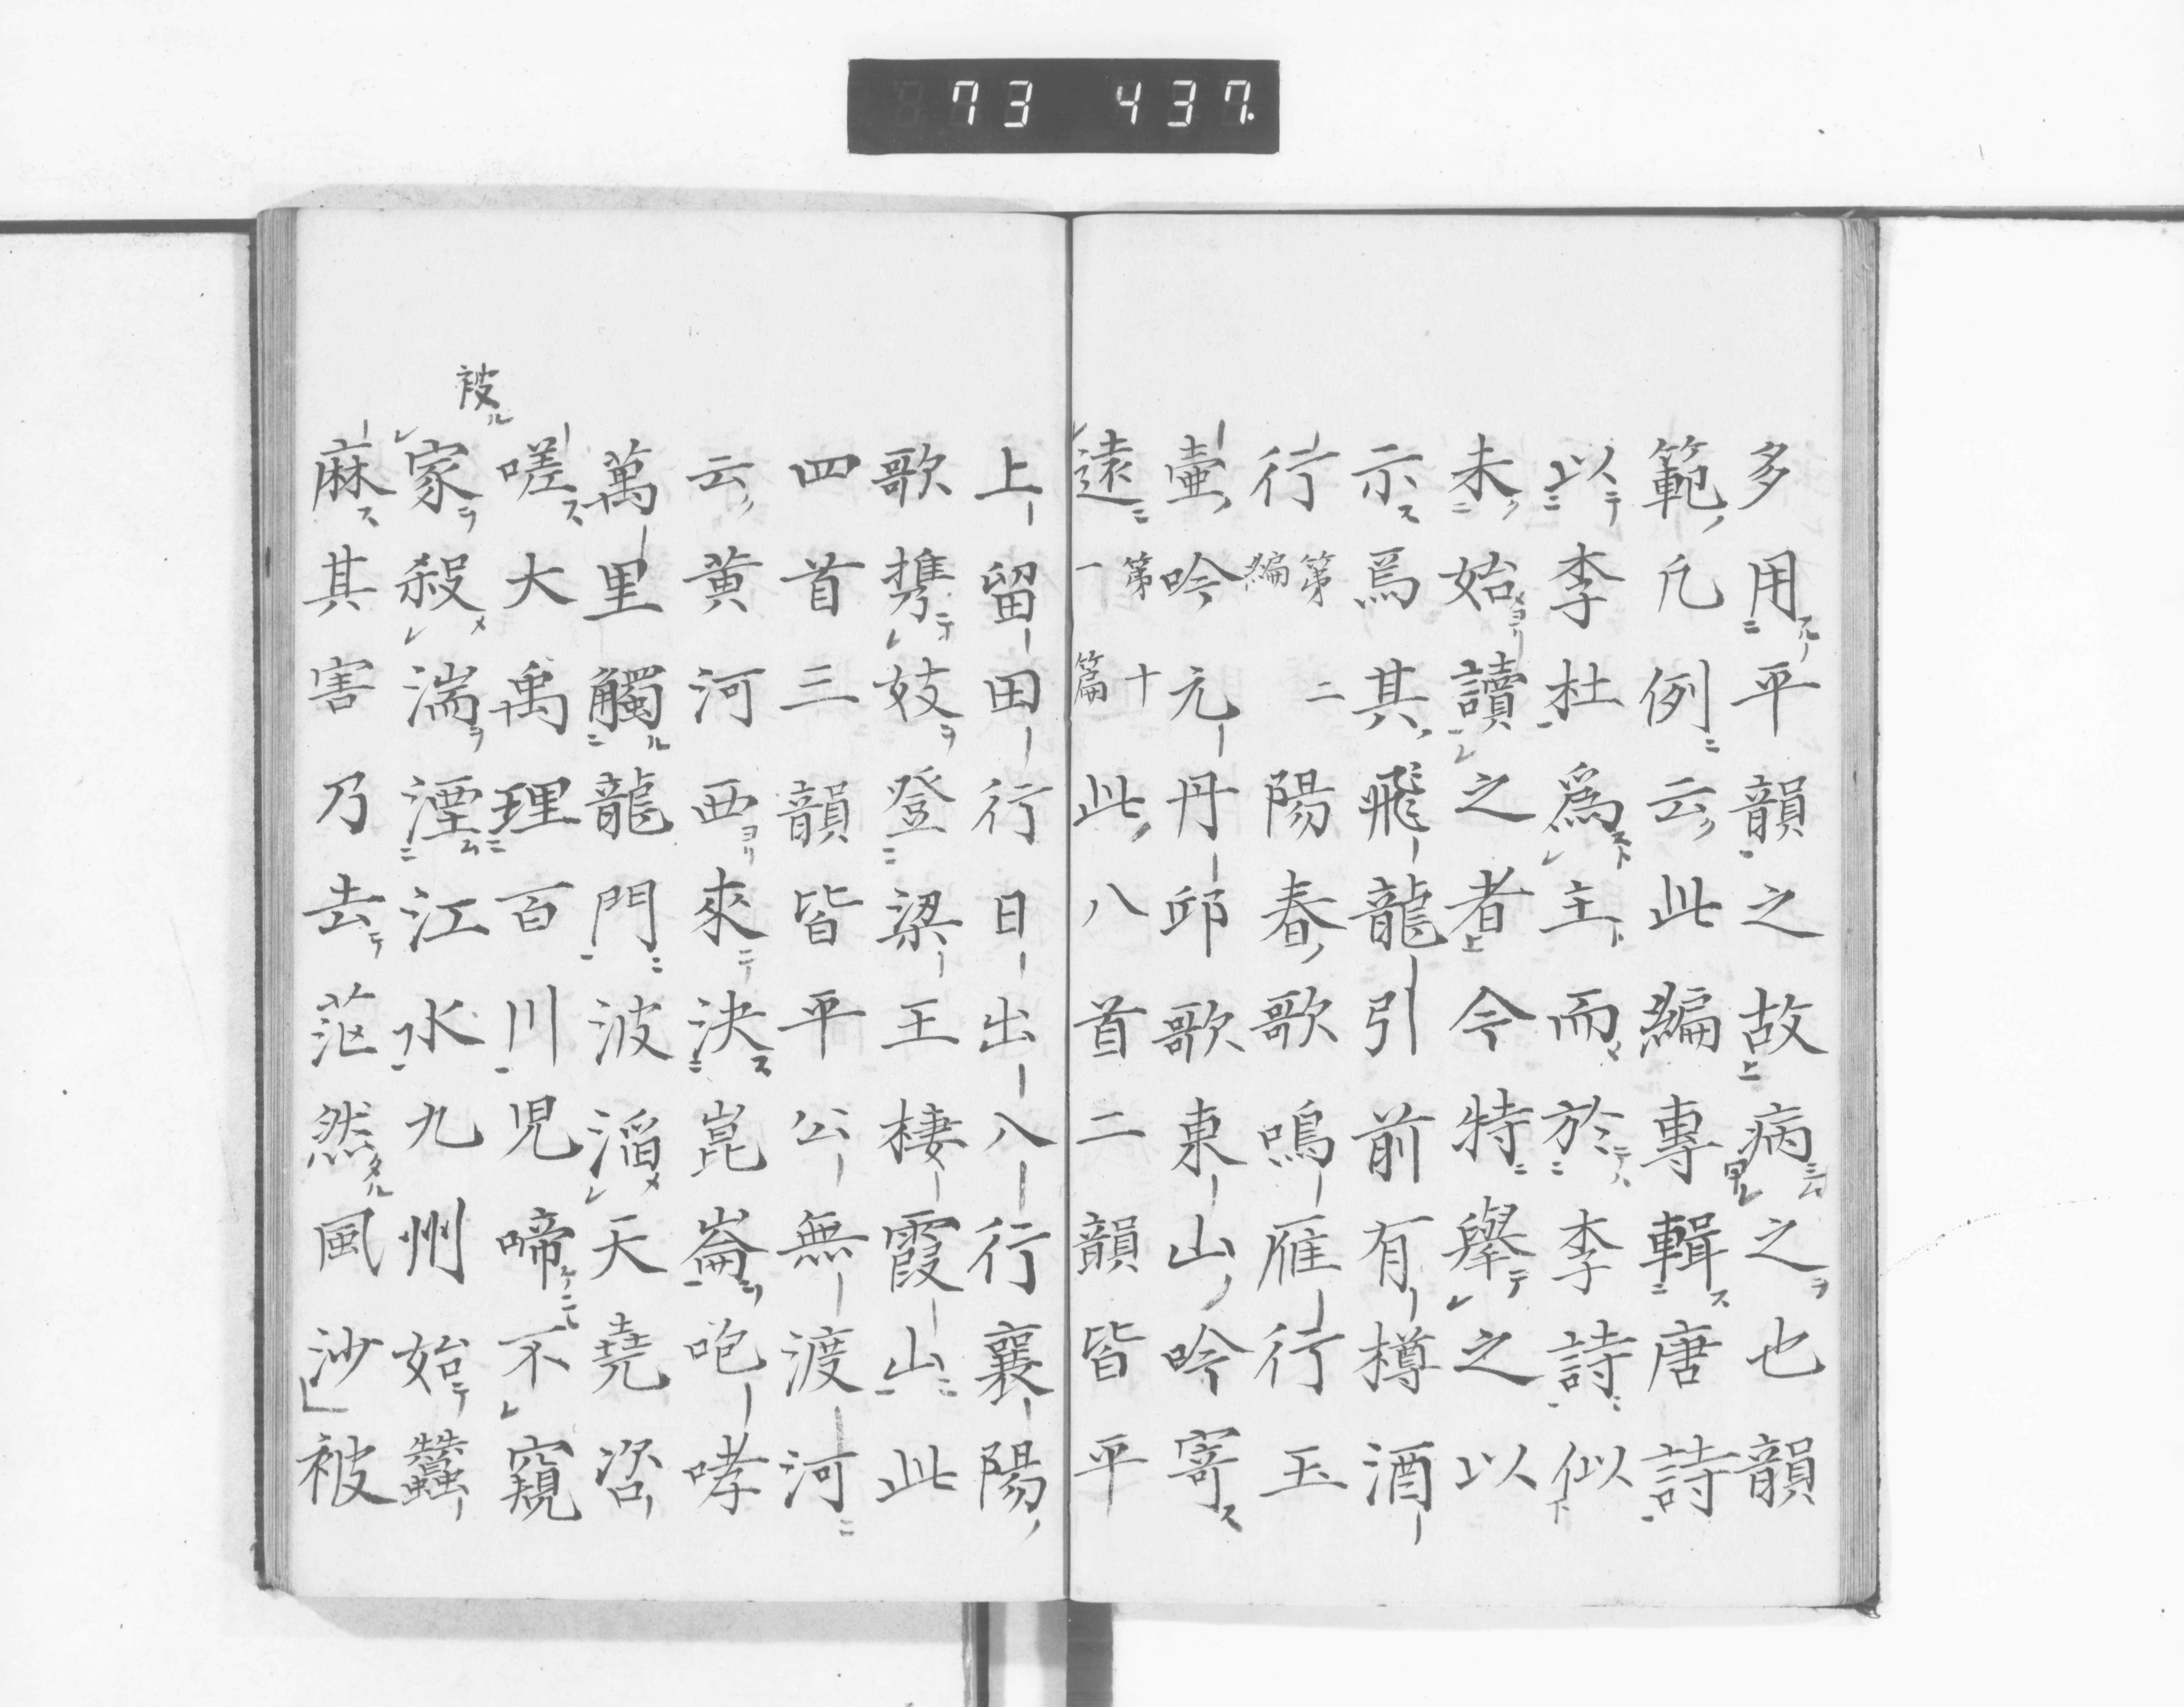 73 437.
多用平韻之故病之也韻
範凡例云此編專輯唐詩
以李杜爲主而於李詩似
未始讀之者今特舉之以
示焉其飛龍引前有樽酒
行第二編陽春歌鳴雁行玉
壷吟元丹邱歌東山吟寄
遠第十一篇此八首二韻皆平
上留田行日出八行襄陽
歌携妓登梁王棲霞山此
四首三韻皆平公無渡河
云黄河西來決崑崙咆哮
萬里觸龍門波滔天堯咨
嗟大禹理百川児啼不窺
被ル
家殺湍湮江水九州始蠶
麻其害乃去茫然風沙被